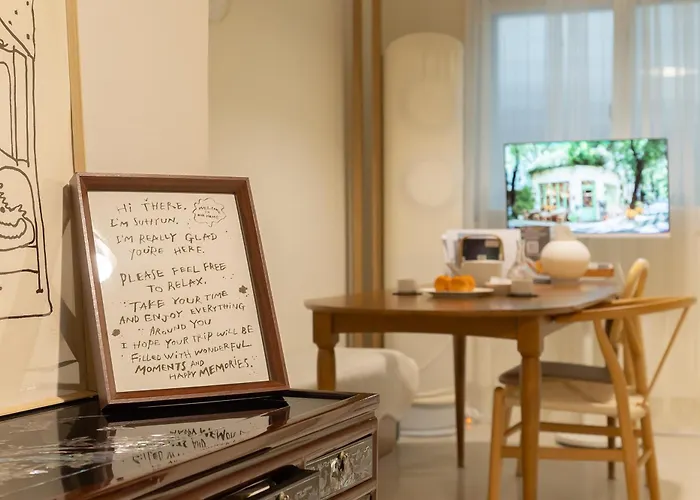 HI THERE.
I'M SUHYUN.
I'M REALLY GLAD
YOU'RE HERE.
PLEASE FEEL FREE
TO RELAX.
TAKE YOUR TIME
AND ENJOY EVERYTHING
AROUND YOU
I HOPE YOUR TRIP WILL BE
FILLED WITH WONDERFUL
MOMENTS AND
HAPPY MEMORIES.